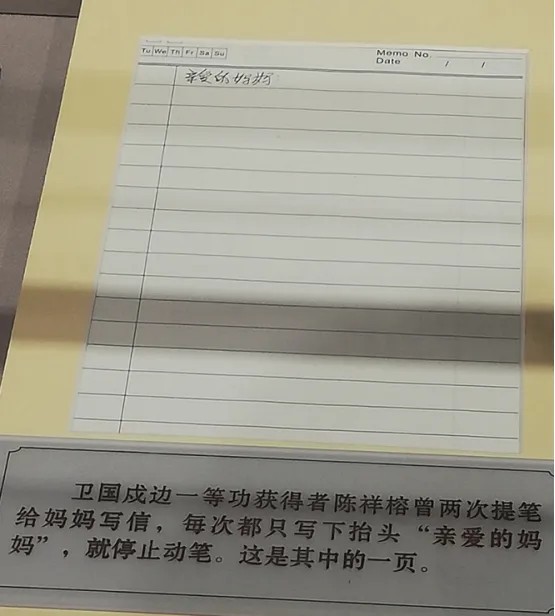 Tu We Th Fr Sa Su
Memo No.
Date / /
亲爱的妈妈
卫国戍边一等功获得者陈祥榕曾两次提笔
给妈妈写信，每次都只写下抬头“亲爱的妈
妈”，就停止动笔。这是其中的一页。